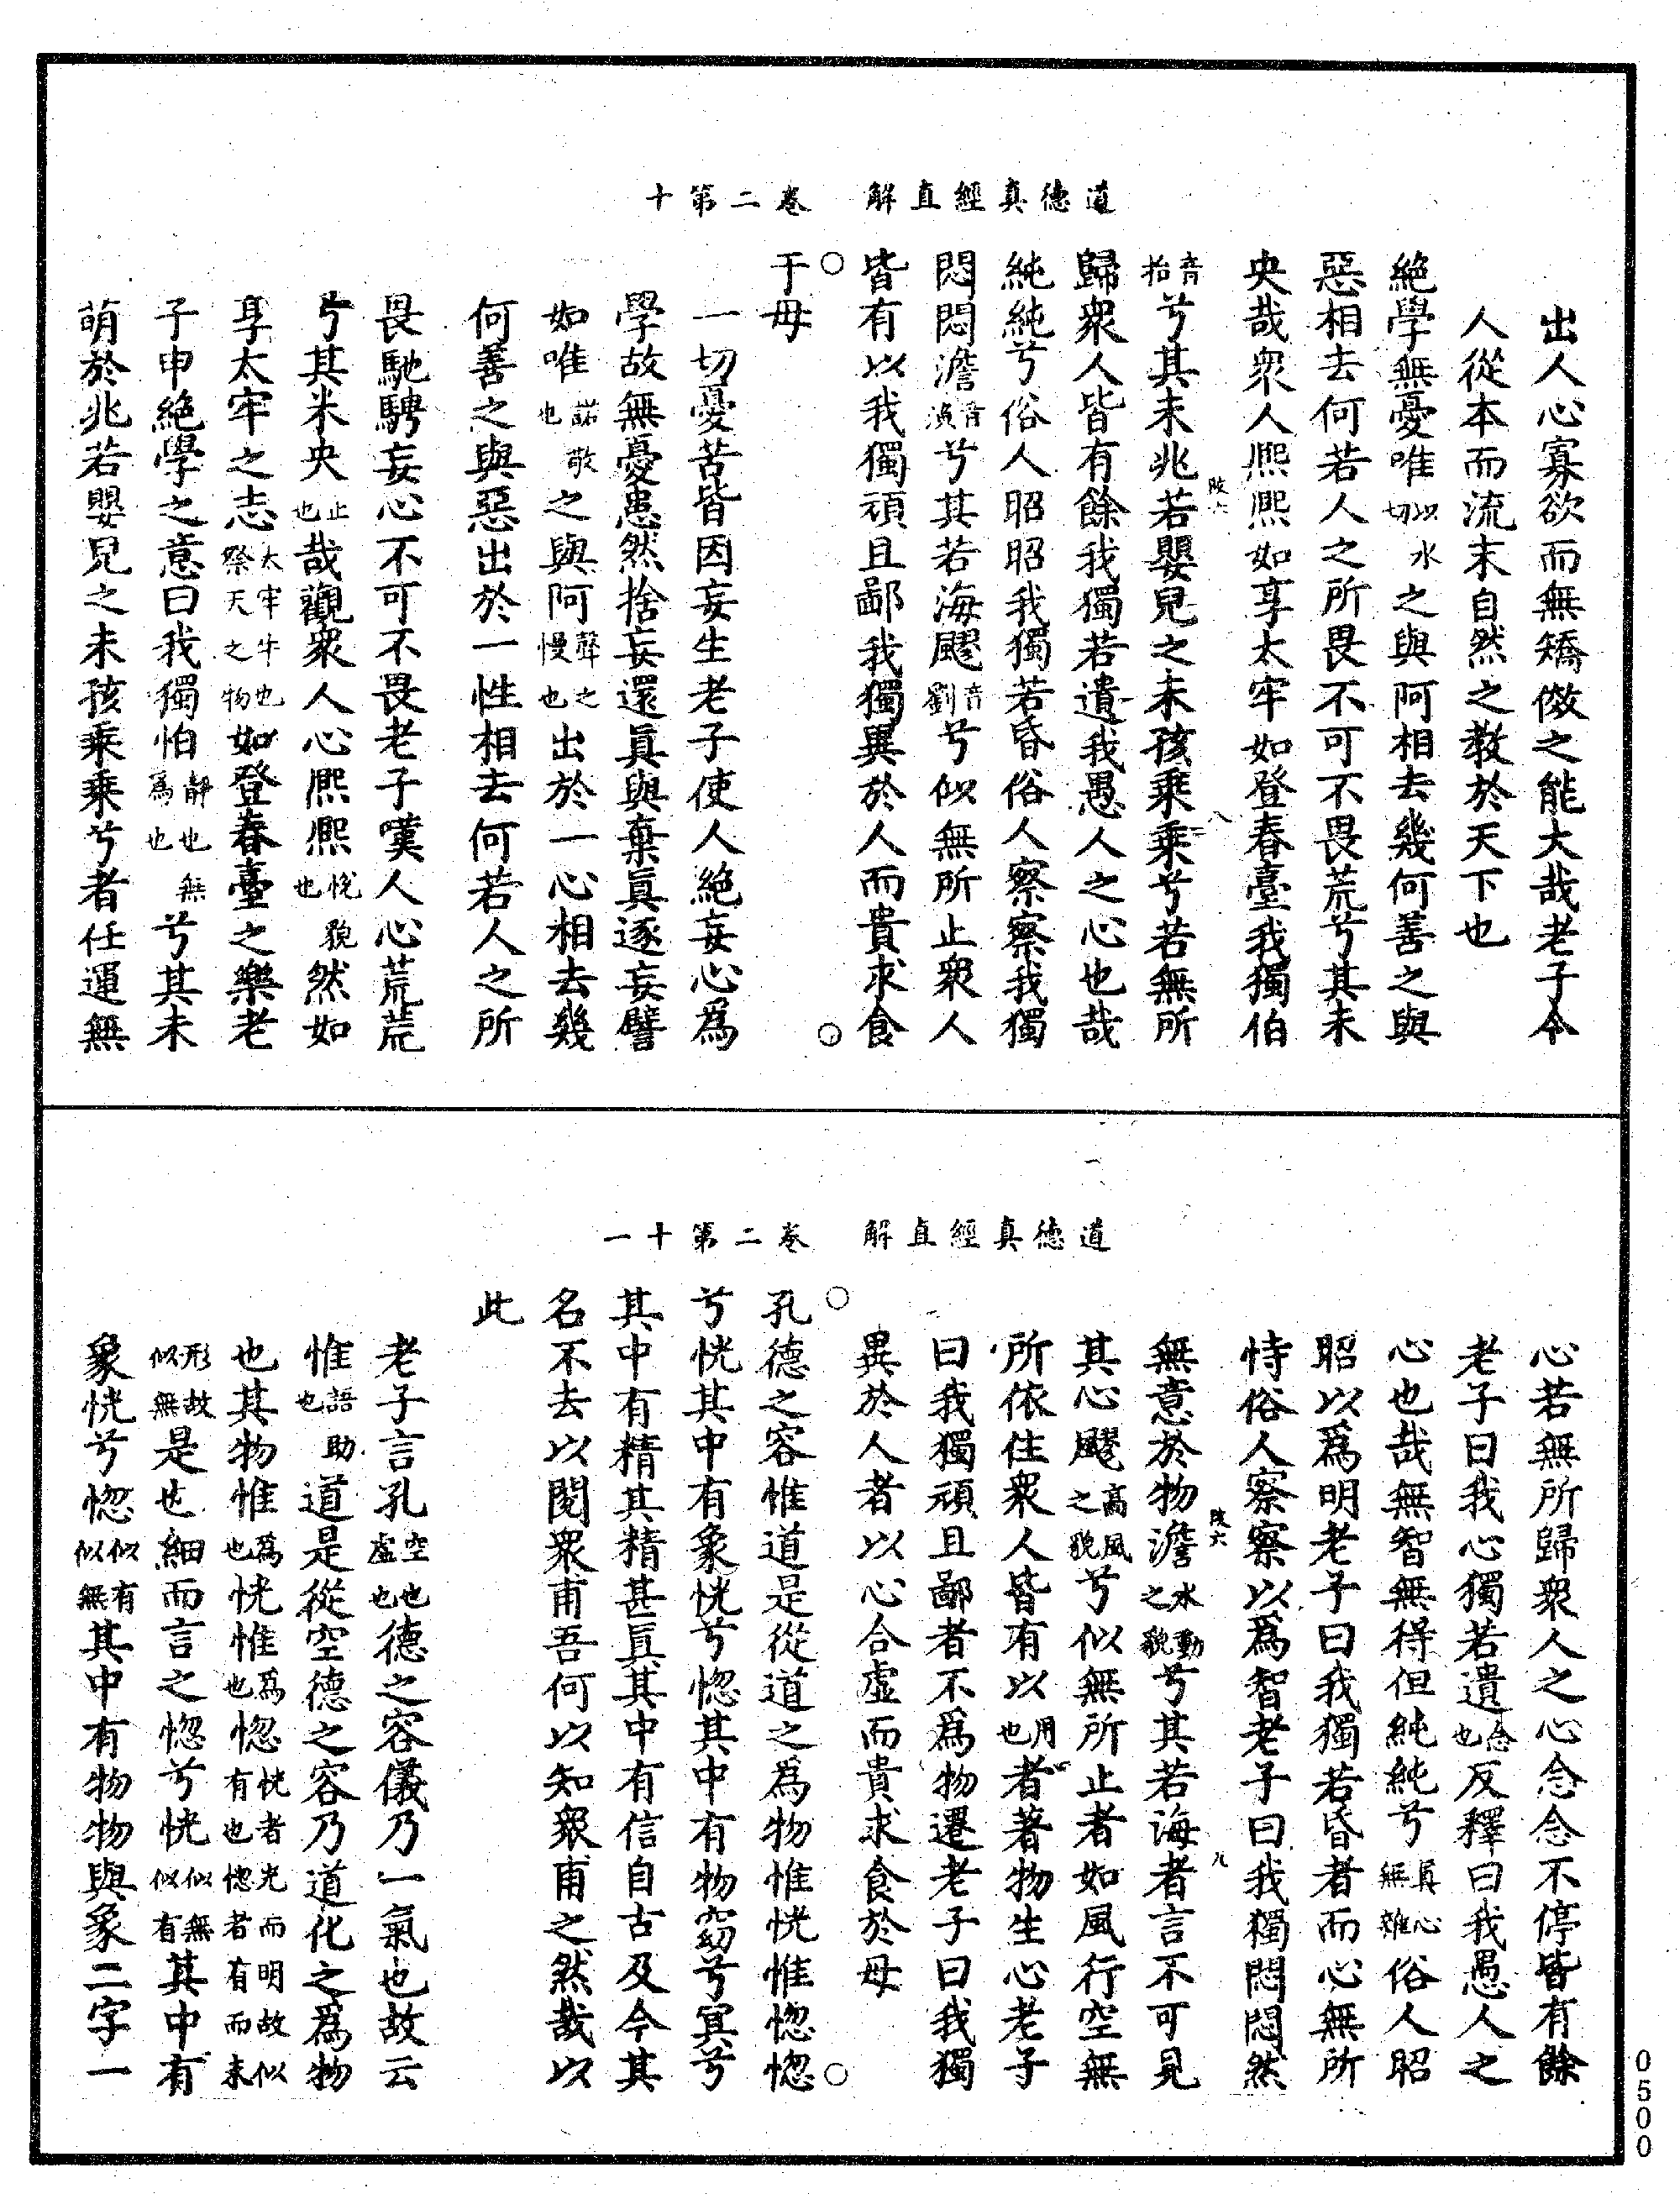 道德真經直解　卷二第十
出人心寡欲而無矯傚之能大哉老子令
人從本而流末自然之教於天下也
絕學無憂唯以水切之與阿相去幾何善之與
惡相去何若人之所畏不可不畏荒兮其未
央哉衆人熈熈如享太牢如登春臺我獨怕
兮其未兆若嬰兒之未孩乘乘兮若無所
音拍
歸衆人皆有餘我獨若遺我愚人之心也哉
純純兮俗人昭昭我獨若昏俗人察察我獨
悶悶澹兮其若海飂音劉兮似無所止衆人
皆有以我獨頑且鄙我獨異於人而貴求食
于母
一切憂苦皆因妄生老子使人絕妄心爲
學故無憂患然捨妄還眞與棄眞逐妄譬
如唯諾敬也之與阿聲之慢也出於一心相去幾
何善之與惡出於一性相去何若人之所
畏馳騁妄心不可不畏老子嘆人心荒荒
兮其未央止也哉觀衆人心熈熈悅貌也然如
享太牢之志太牢牛也祭天之物如登春臺之樂老
子申絕學之意曰我獨怕靜也無爲也兮其未
萌於兆若嬰兒之未孩乘乘兮者任運無
陂六
八
道德真經直解　卷二第十一
心若無所歸衆人之心念念不停皆有餘
老子曰我心獨若遺念也反釋曰我愚人之
心也哉無智無得但純純兮真心無雜俗人昭
昭以爲明老子曰我獨若昏者而心無所
恃俗人察察以爲智老子曰我獨悶悶然
無意於物澹水動之貌兮其若海者言不可見
其心飂高風之貌兮似無所止者如風行空無
所依住衆人皆有以用也者著物生心老子
曰我獨頑且鄙者不爲物遷老子曰我獨
異於人者以心合虛而貴求食於母
孔德之容惟道是從道之爲物惟恍惟惚惚
兮恍其中有象恍兮惚其中有物窈兮冥兮
其中有精其精甚眞其中有信自古及今其
名不去以閱衆甫吾何以知衆甫之然哉以
此
老子言孔空也虛也德之容儀乃一氣也故云
惟語助也道是從空德之容乃道化之爲物
也其物惟爲也恍惟爲也惚恍者光而明故似有也惚者有而未
形故似無是也細而言之惚兮恍似無似有其中有
象恍兮惚似有似無其中有物物與象二字一
陂六
九
0500